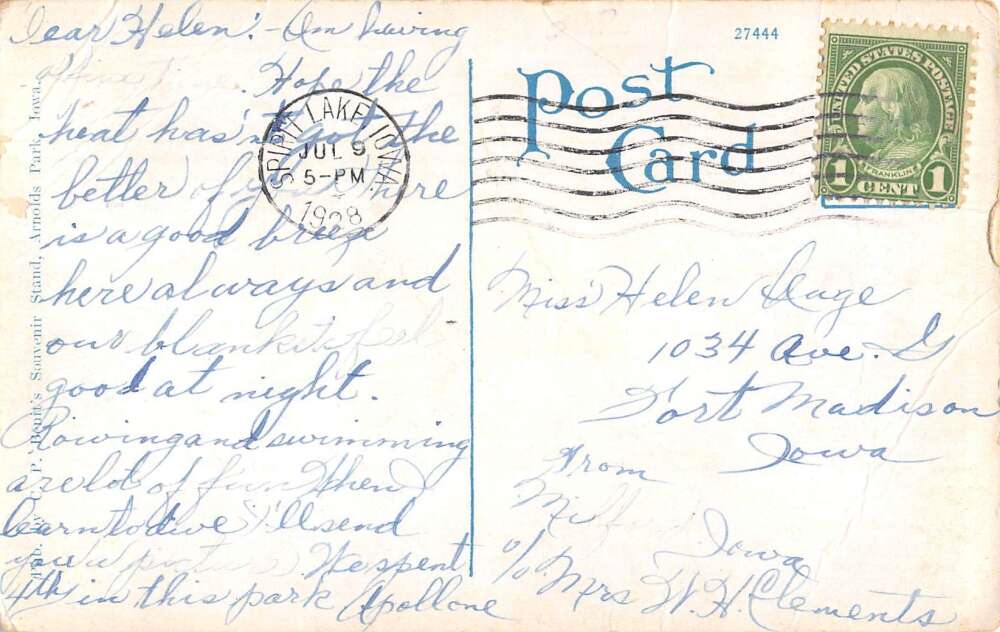 Dear Helen:- Am having
a fine time. Hope the
heat hasn't got the
better of you. There
is a good breeze
here always and
our blankits feel
good at night.
Rowing and swimming
are lot of fun. When I
learn to dive I'll send
you a picture. We spent
4th in this park Apollone
Pub. by C. P. Benit's Souvenir Stand, Arnolds Park, Iowa.
SPIRIT LAKE, IOWA.
JUL 9
5-PM
1928
27444
Post
Card
UNITED STATES POSTAGE
FRANKLIN
1 CENT 1
Miss Helen
1034 Ave. G
Fort Madison
Iowa
From
Milford
Iowa
c/o Mrs W. H. Clements